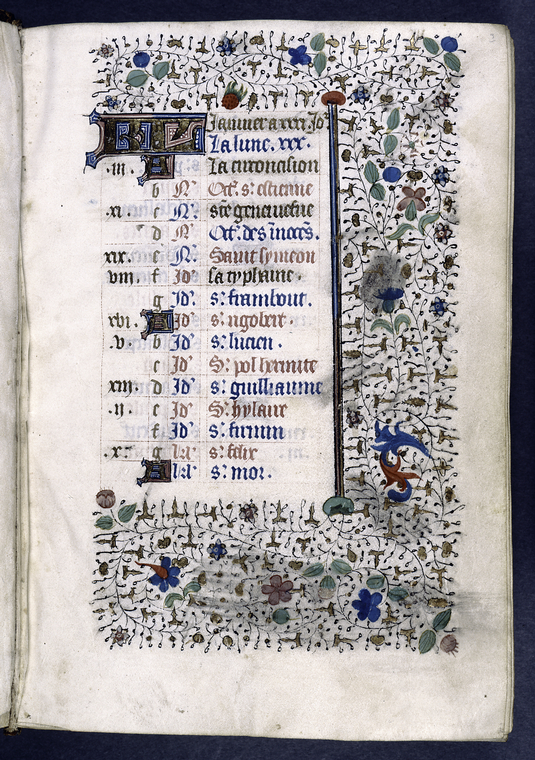 Januier a xxxi. Jo.
La lune. xxx.
.iii. La circoncision
b N. Oct. s. estienne
.xi. c N. ste geneuiefue
d N. Oct. des innocs.
xix. e N. Saint symeon
viii. f Id' la typhaine.
g Id' s. frambout.
xvi. Id' s. rigobert.
.v. b Id' s. lucien.
c Id' S. pol hermite
xiii. d Id' s. guilliaume
.ii. e Id' S. hylaire
f Id' s. firmin
.x. g kl' s. felix
kl' s. mor.